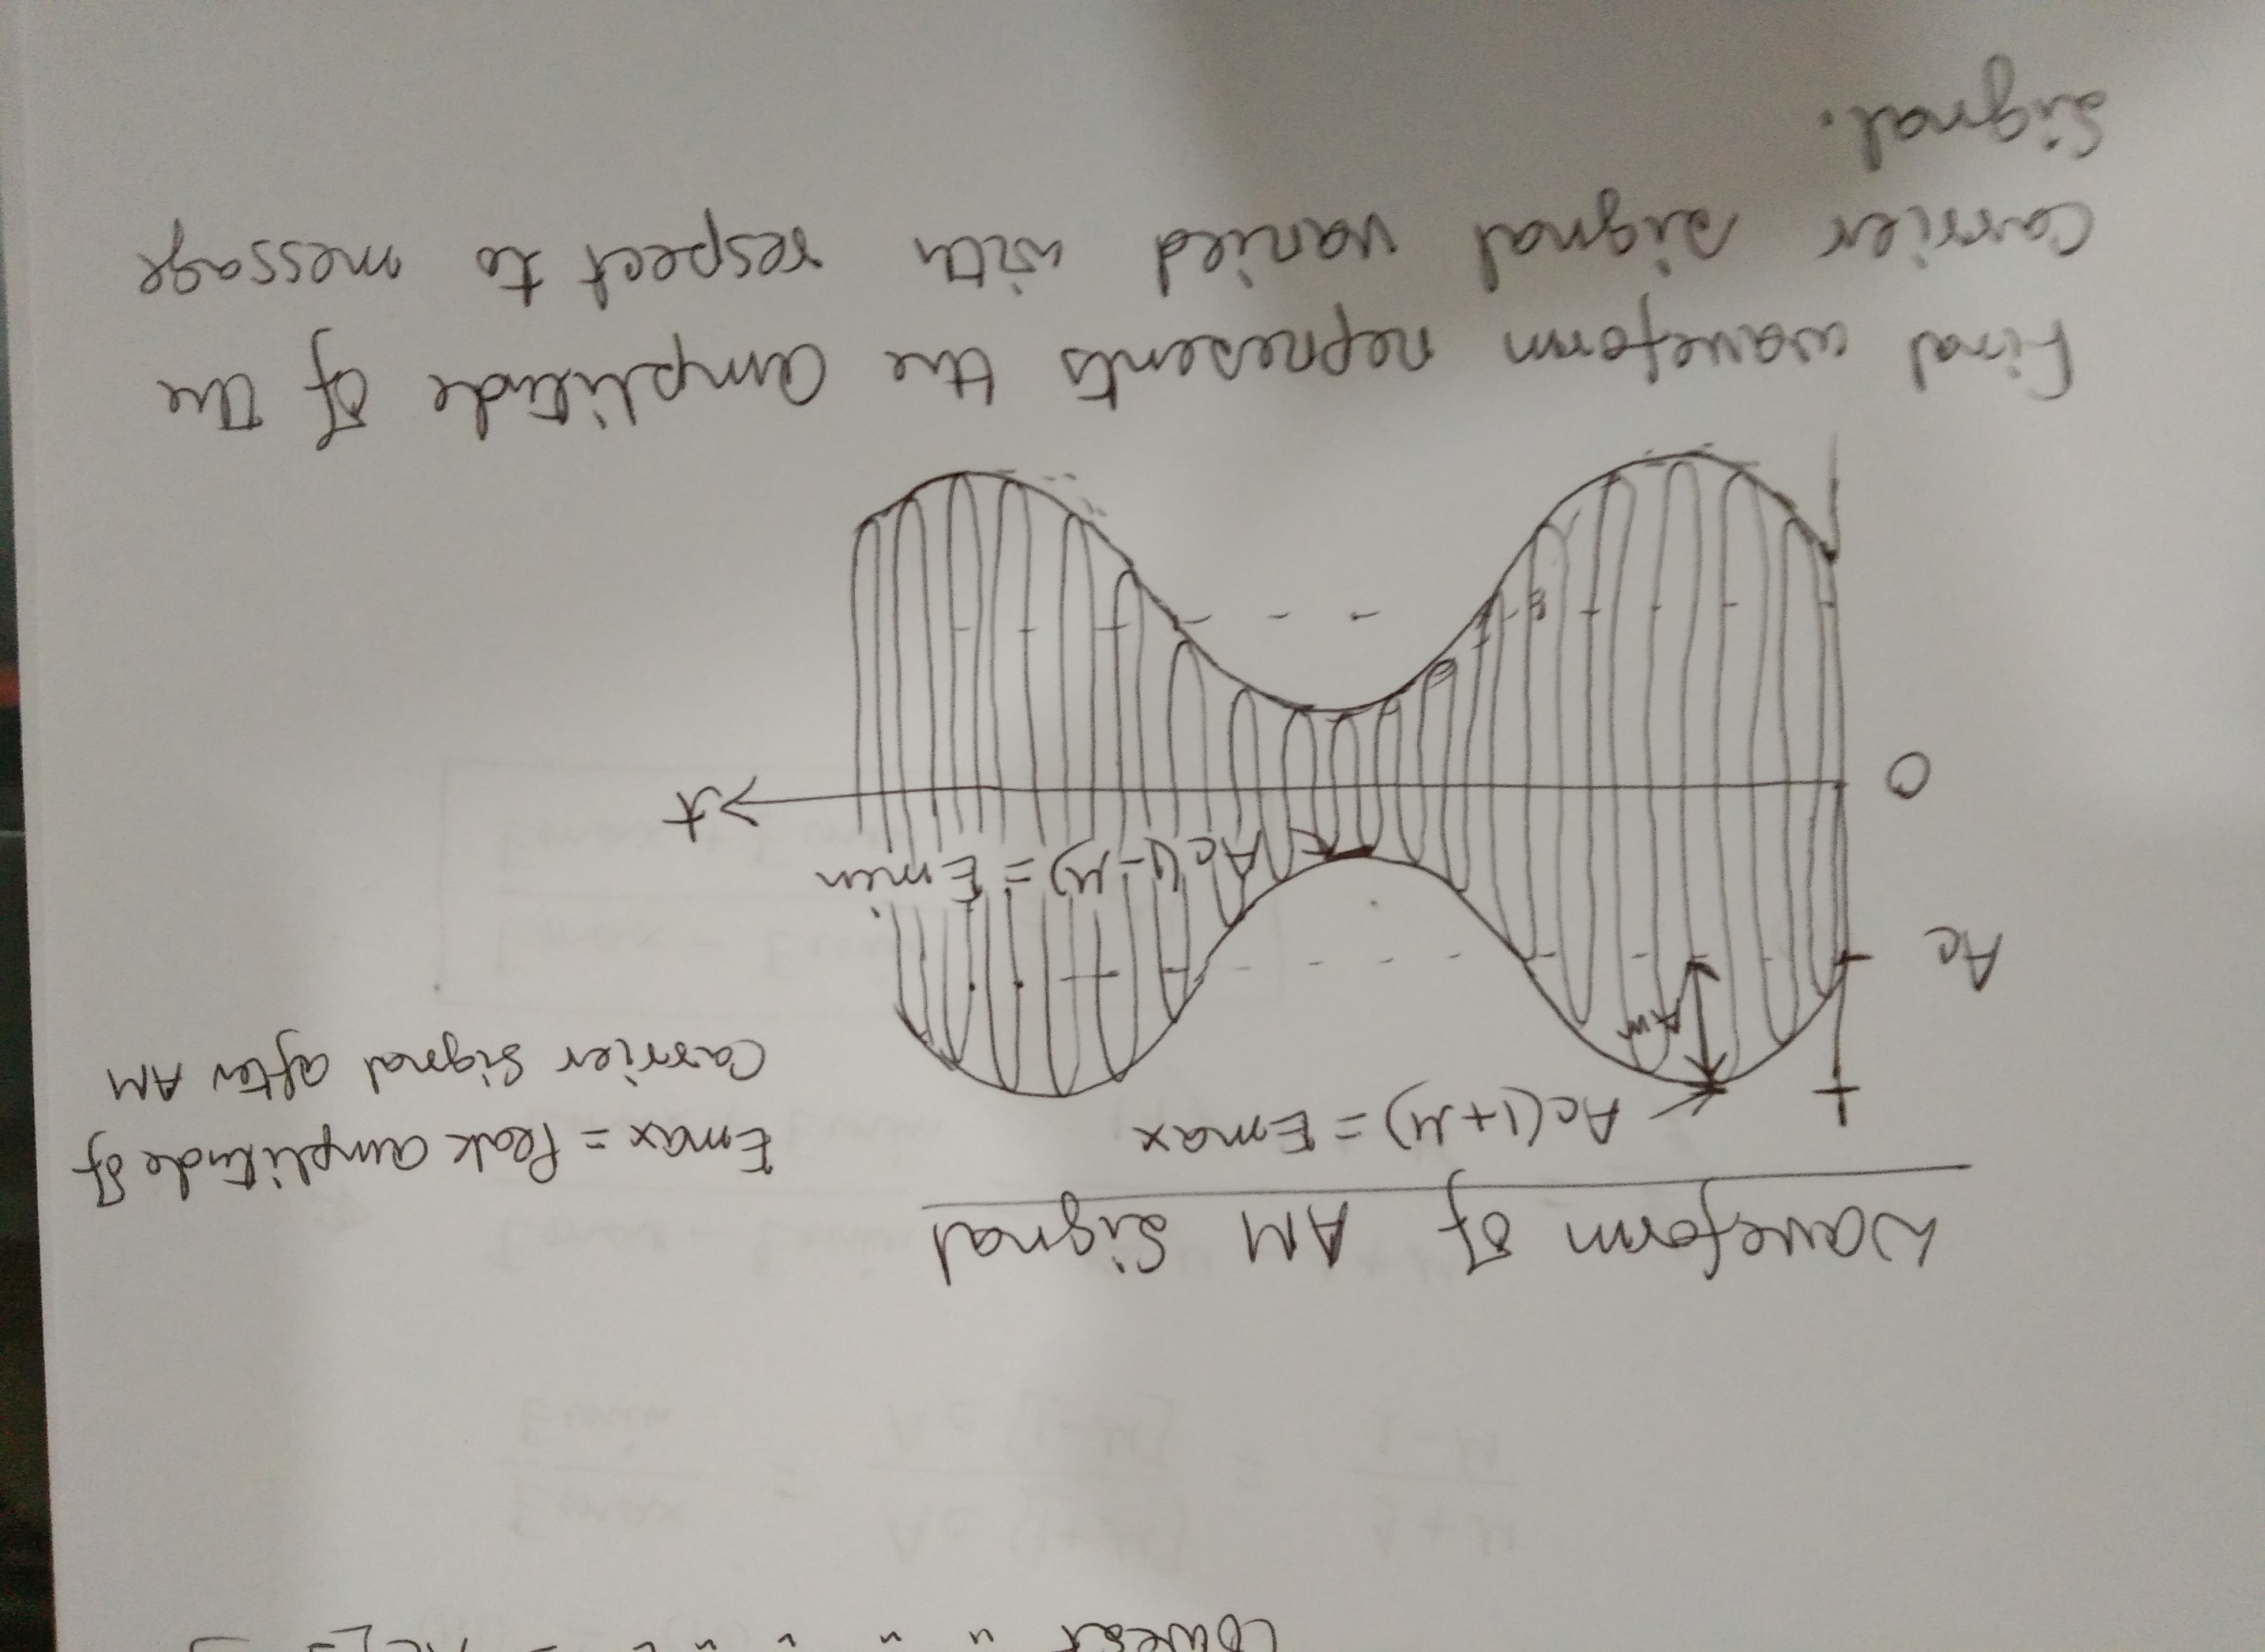 Lowest " " " " = Ac[
Waveform of AM Signal
Ac(1+μ) = Emax
Emax = Peak amplitude of
Carrier Signal after AM
Am
Ac
Ac(1-μ) = Emin
0
t
Final waveform represents the amplitude of the
Carrier signal varied with respect to message
Signal.